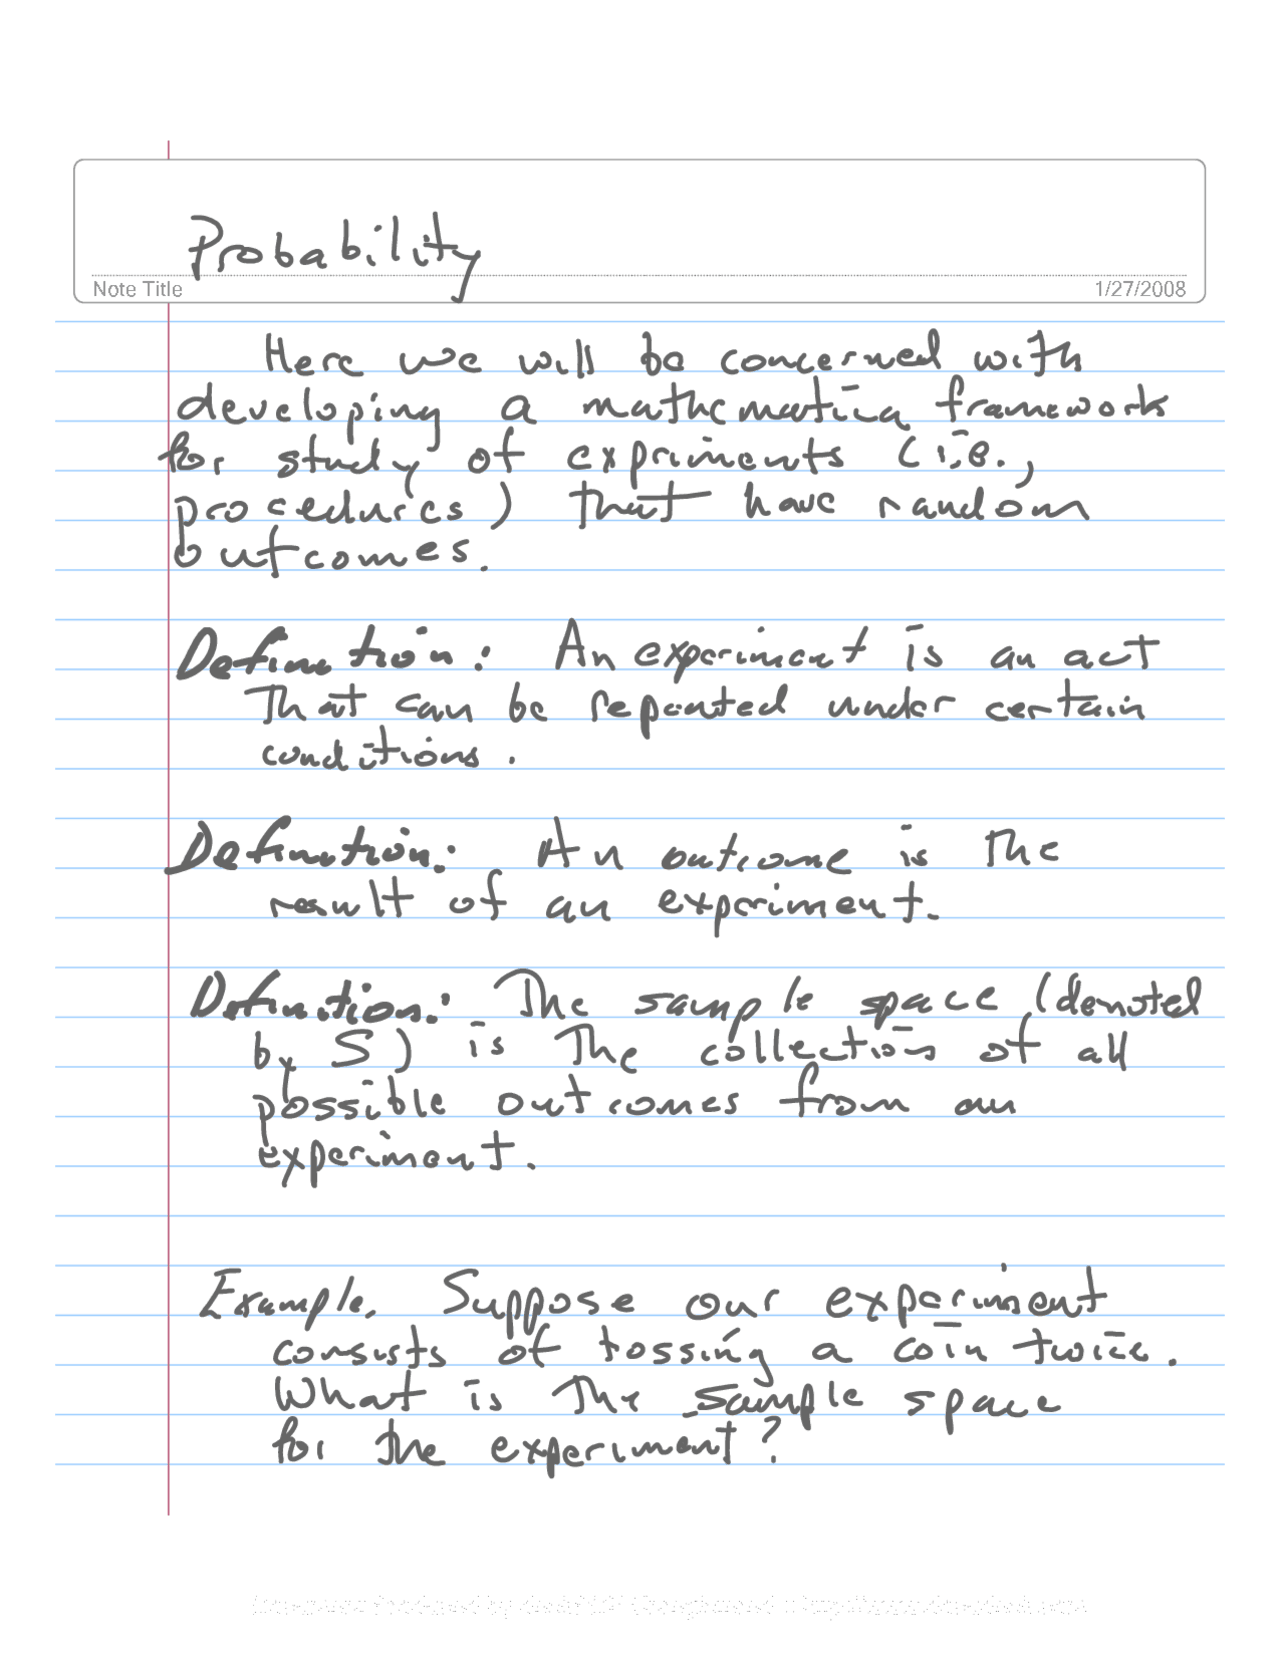 Probability
Note Title
1/27/2008
Here we will be concerned with
developing a mathematica framework
for study of expriments (i.e.,
procedures) that have random
outcomes.
Definition: An experiment is an act
That can be repeated under certain
conditions.
Definition: An outcome is the
result of an experiment.
Definition: The sample space (denoted
by S) is The collection of all
possible outcomes from an
experiment.
Example. Suppose our experiment
consists of tossing a coin twice.
What is The sample space
for the experiment?